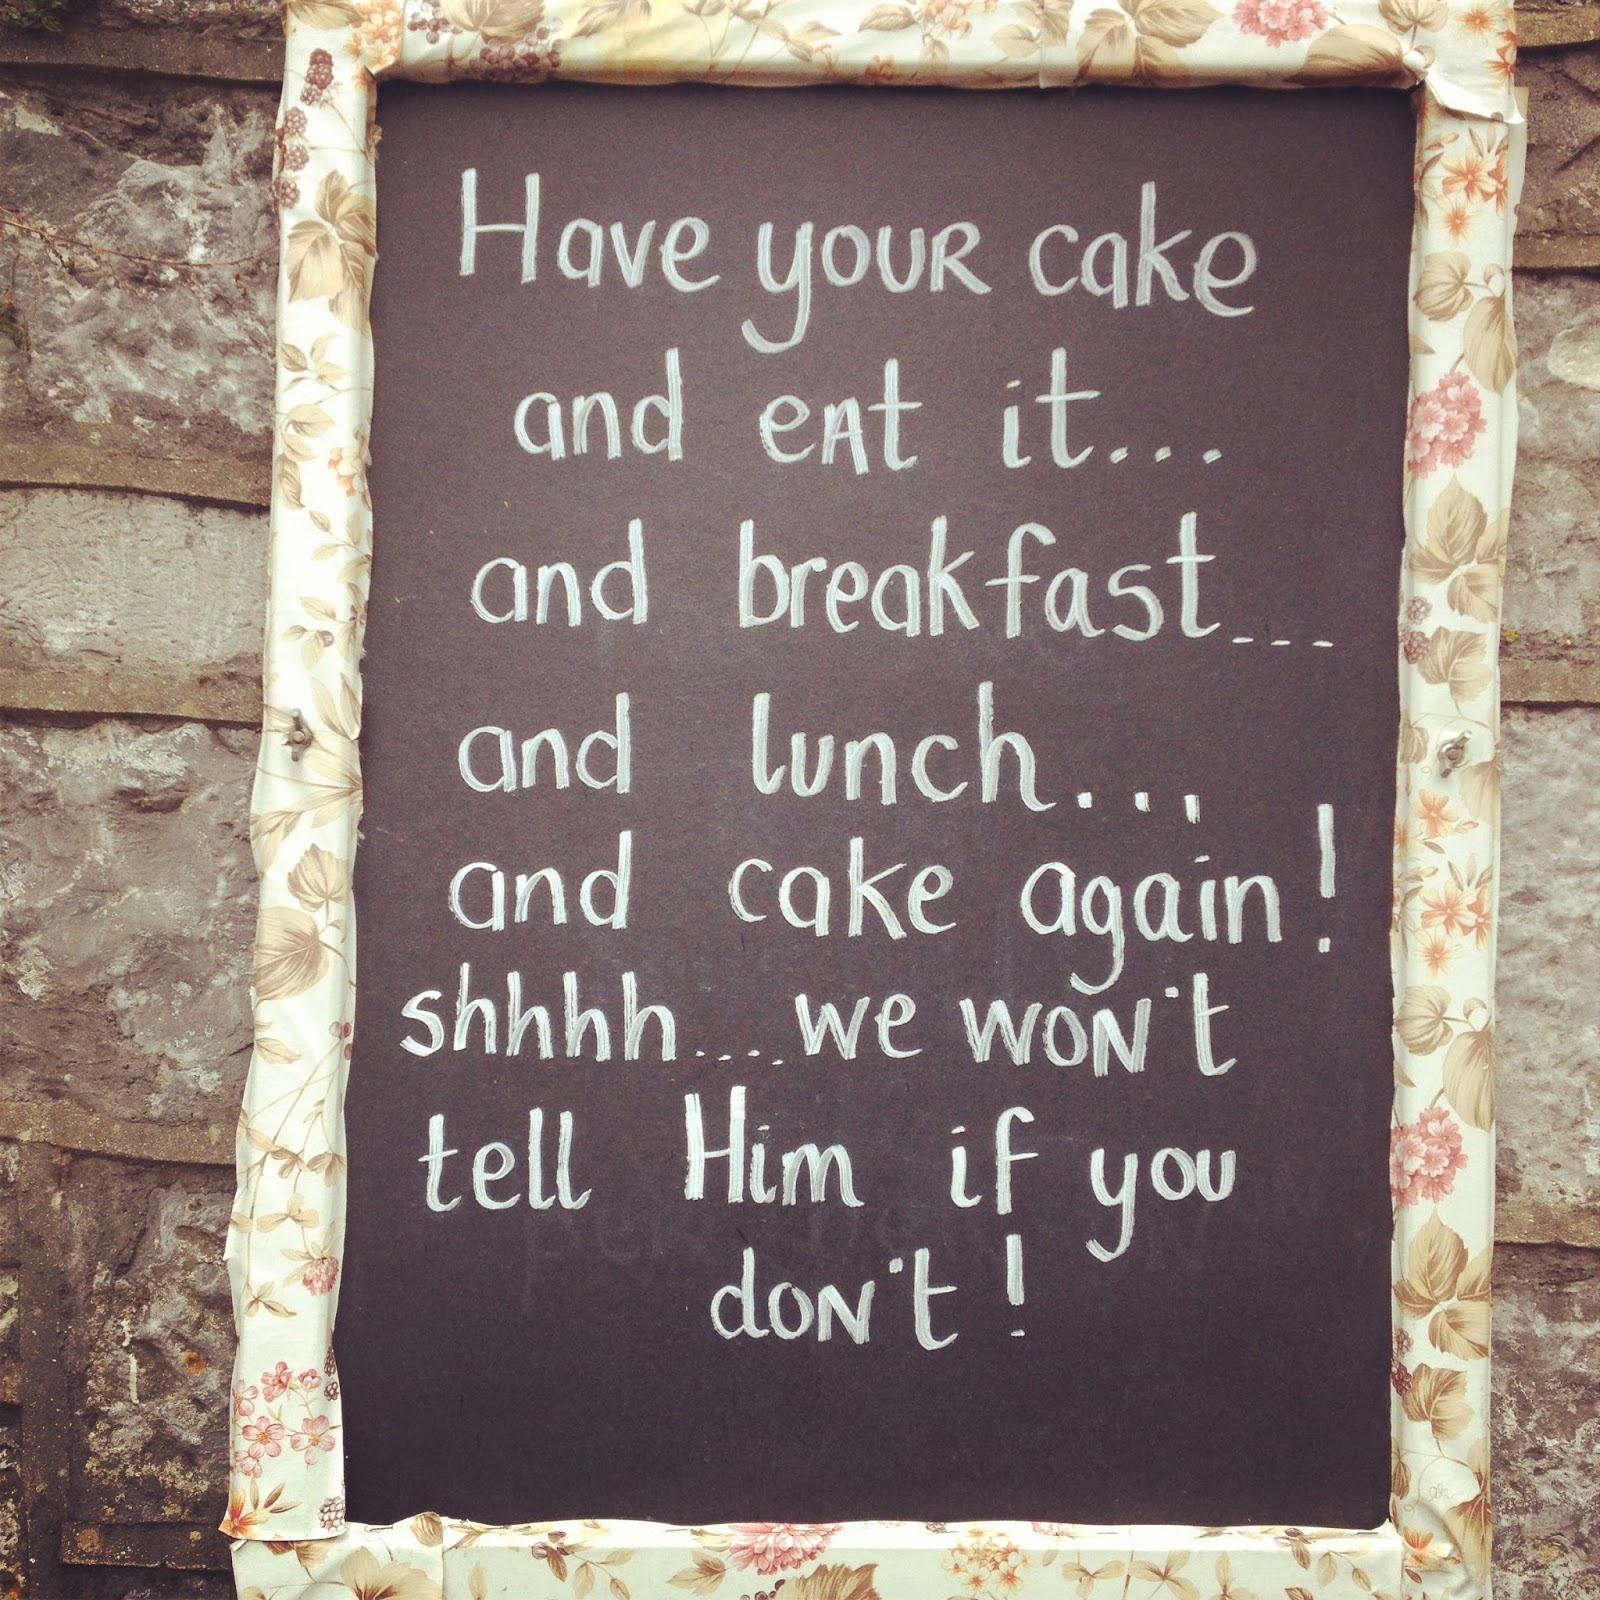 Have your cake
and eat it...
and breakfast...
and lunch...
and cake again!
shhhh....we won't
tell Him if you
don't!